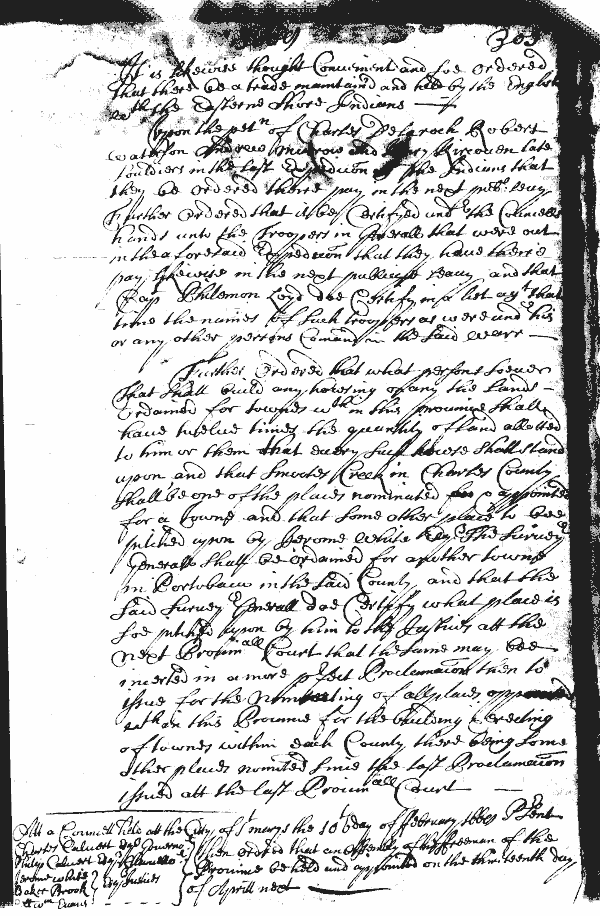 303
It is likewise thought Convenient and soe Ordered
that there be a trade maintaind and held by the English
wth the Easterne Shore Indians
Upon the petn of Charles Delaroch Robert
and late
Souldiers in the last Expedicon the Indians that
they be Ordered there pay in the next levy
further Ordered that it bee Certifyed undr the Councells
hands unto the Troopers in Generall that were out
in the aforesaid Expedicon that they have there
pay likewise in the next publique Leavy and that
Capt Philemon Loyd doe Certify in a list agt that
time the names of such troopers as were undr his
or any other persons Comand in the said warr
Further Ordered that what persons soever
that shall build any howsing upon any the Lands
Ordained for townes wthin this province shall
have twelve times the quantity of land allotted
to him or them that every such howse shall stand
upon and that Smootes Creek in Charles County
shall be one of the places nominated & appointed
for a towne and that some other place to bee
pitched upon by Jerome White Esqr the Survey
Generall shall be ordained for another towne
in Portobaco in the said County and that the
said Survey Generall doe Certify what place is
soe pitched upon by him to the Justices att the
next Provinall Court that the same may bee
inserted in a more pfect Proclamacon then to
issue for the of all places
wthin this Province for the building & erecting
of townes within each County there being some
other places nomited since the last Proclamacon
issued att the last Provinall Court
Att a Councell held att the City of St maryes the 10th day of February 1669 Psent
Charles Calvert Esqr Governor
Philip Calvert Esqr Chancellor
Jerome White
Baker Brook
Wm Evans
Esqr Justices
Then ordered that an assembly of the freemen of the
Province be held and appointed on the thirteenth day
of Aprill next